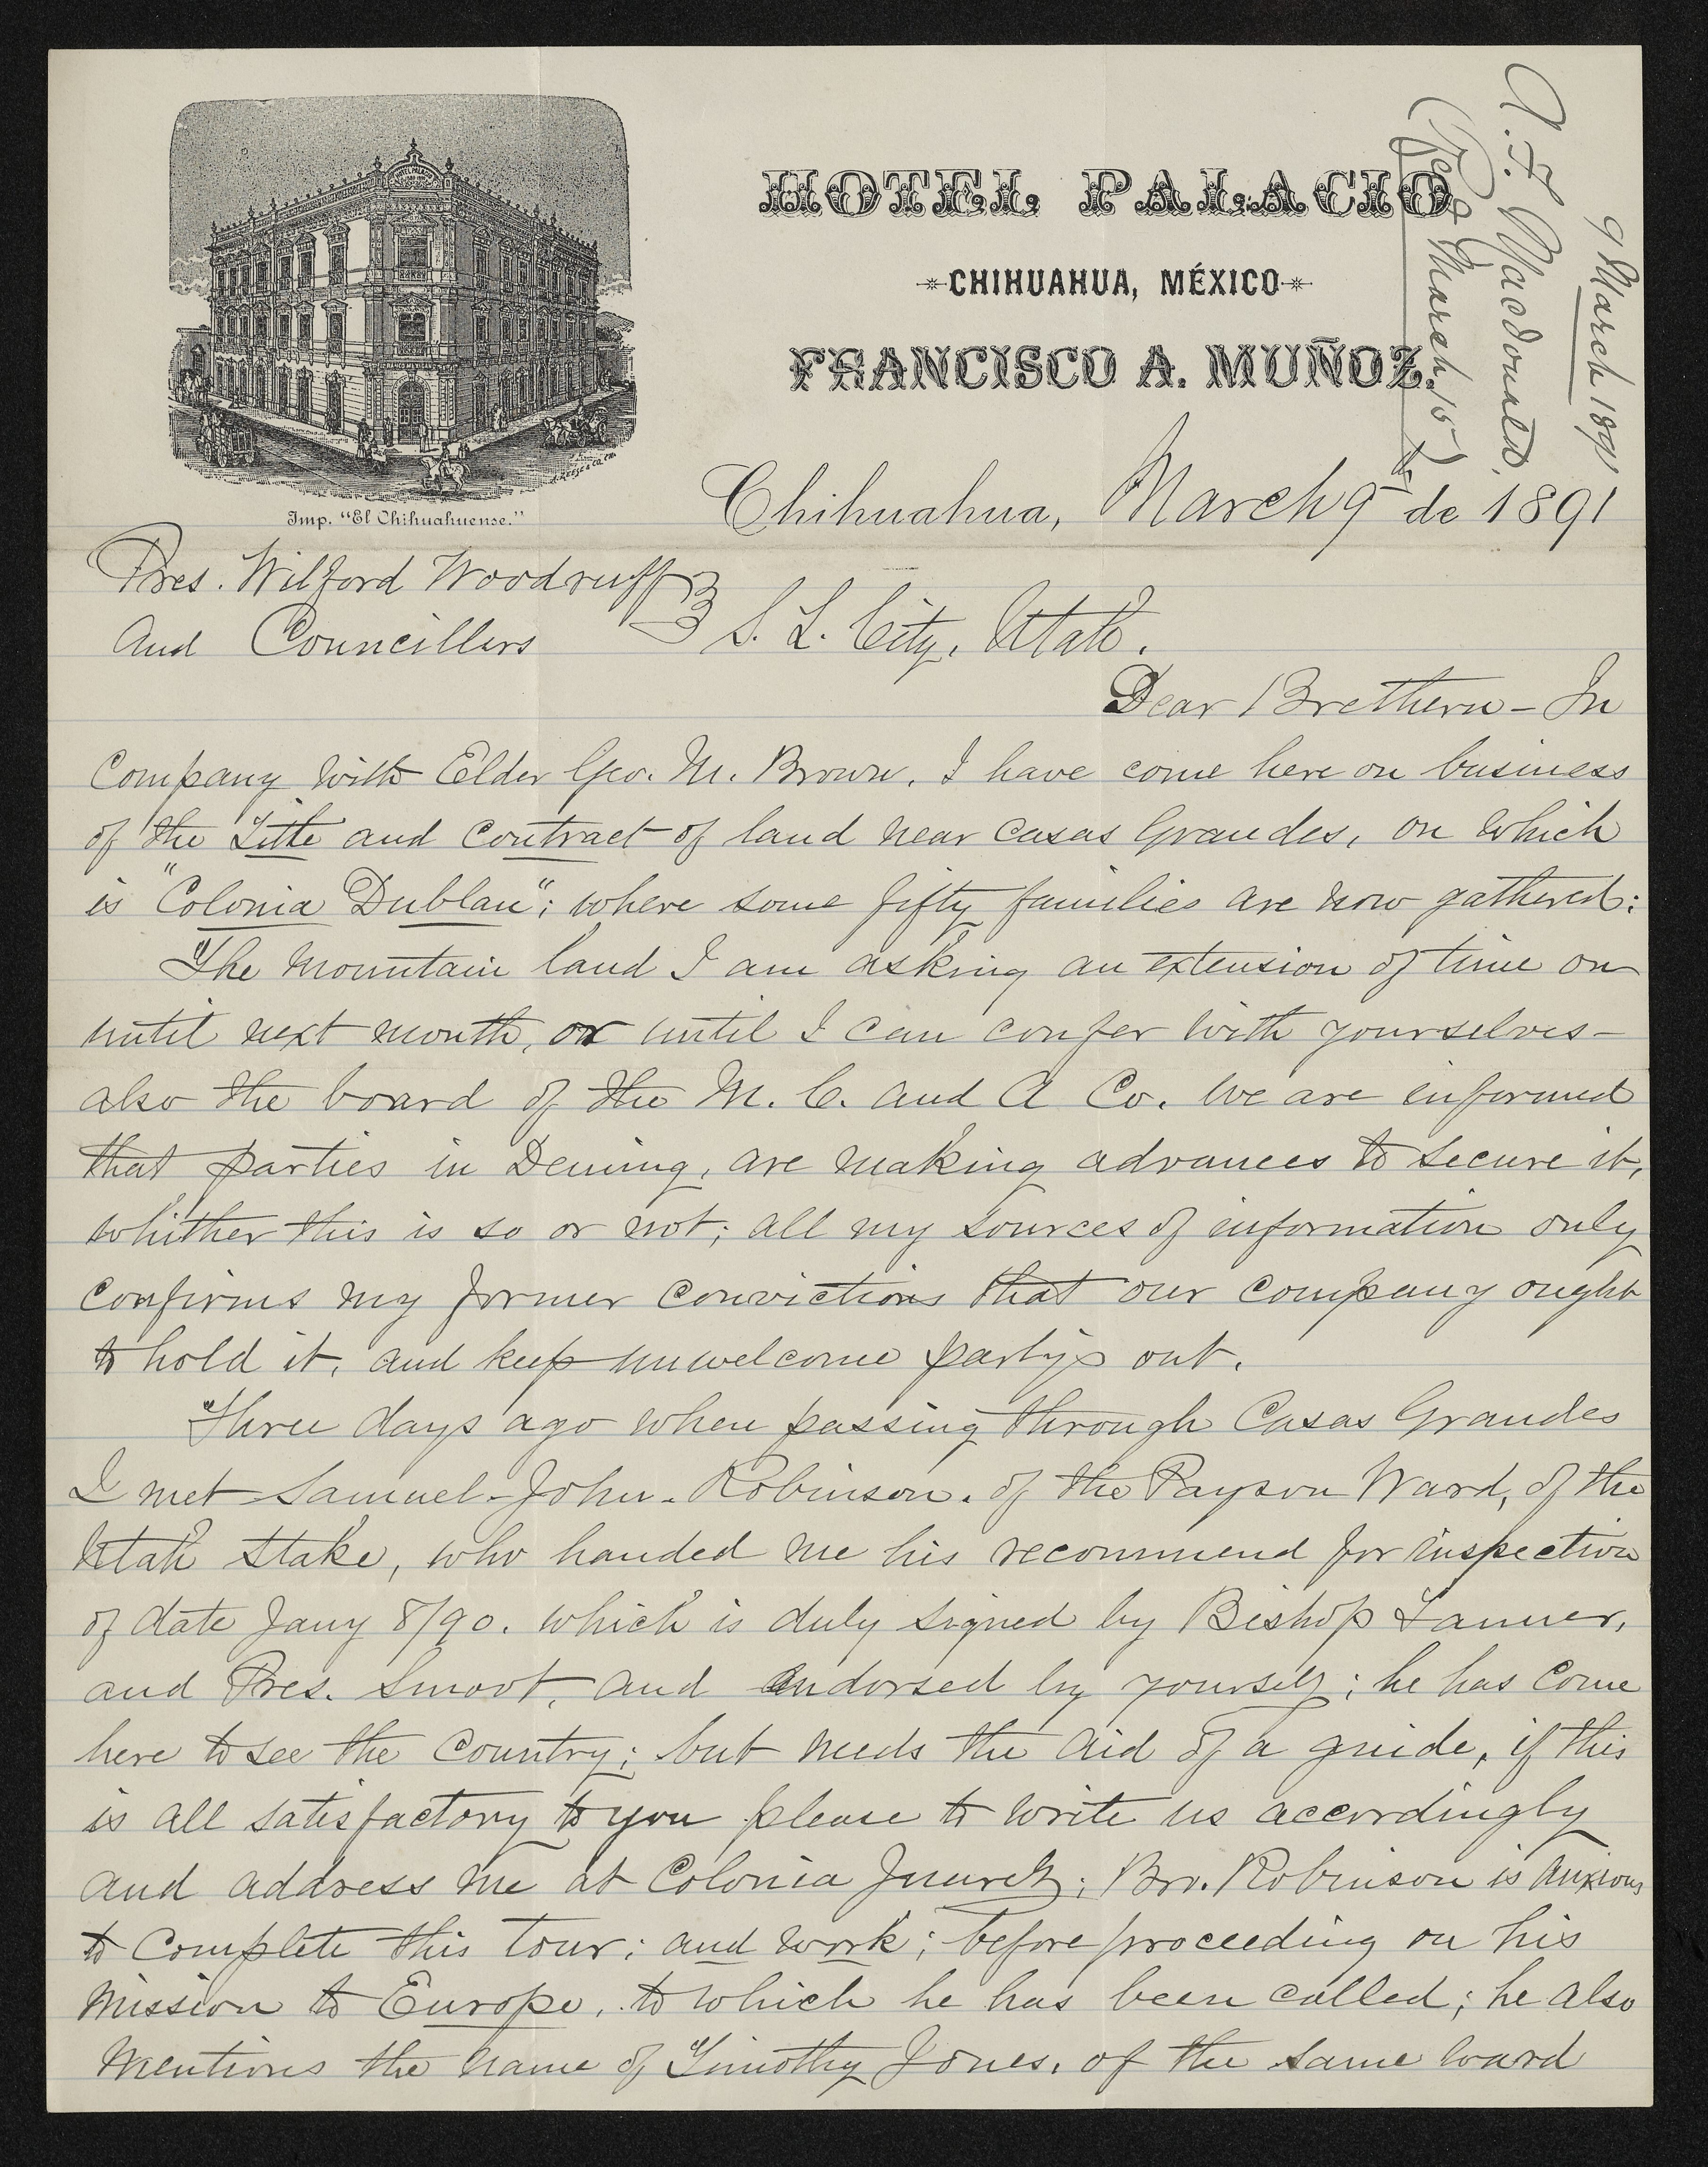 HOTEL PALACIO
CHIHUAHUA, MÉXICO
FRANCISCO A. MUÑOZ.
Imp. "El Chihuahuense."
A. F. Macdonald
9 March 1891
Recd March 15
Chihuahua, March 9th de 1891
Pres. Wilford Woodruff
and Councillers } S. L. City, Utah.
Dear Brethern - In
Company with Elder Geo. M. Brown, I have come here on business
of the Title and Contract of land near Casas Grandes, on which
is "Colonia Dublan"; where some fifty families are now gathered:
The Mountain land I am asking an extension of time on
until next month, or until I can confer with yourselves-
also the board of the M. C. and A Co. We are informed
that parties in Deming, are making advances to secure it,
whither this is so or not; all my sources of information only
confirms my former convictions that our company ought
to hold it, and keep unwelcome partys out.
Three days ago when passing through Casas Grandes
I met Samuel-John-Robinson. of the Payson Ward, of the
Utah Stake, who handed me his recommend for inspection
of date Jany 8/90. which is duly signed by Bishop Tanner,
and Pres. Smoot, and endorsed by yourself; he has come
here to see the Country; but needs the aid of a guide, if this
is all satisfactory to you please to write us accordingly
and address me at Colonia Juarez; Bro. Robinson is anxious
to complete this tour; and work; before proceeding on his
Mission to Europe, to which he has been called; he also
Mentions the name of Timothy Jones, of the same ward